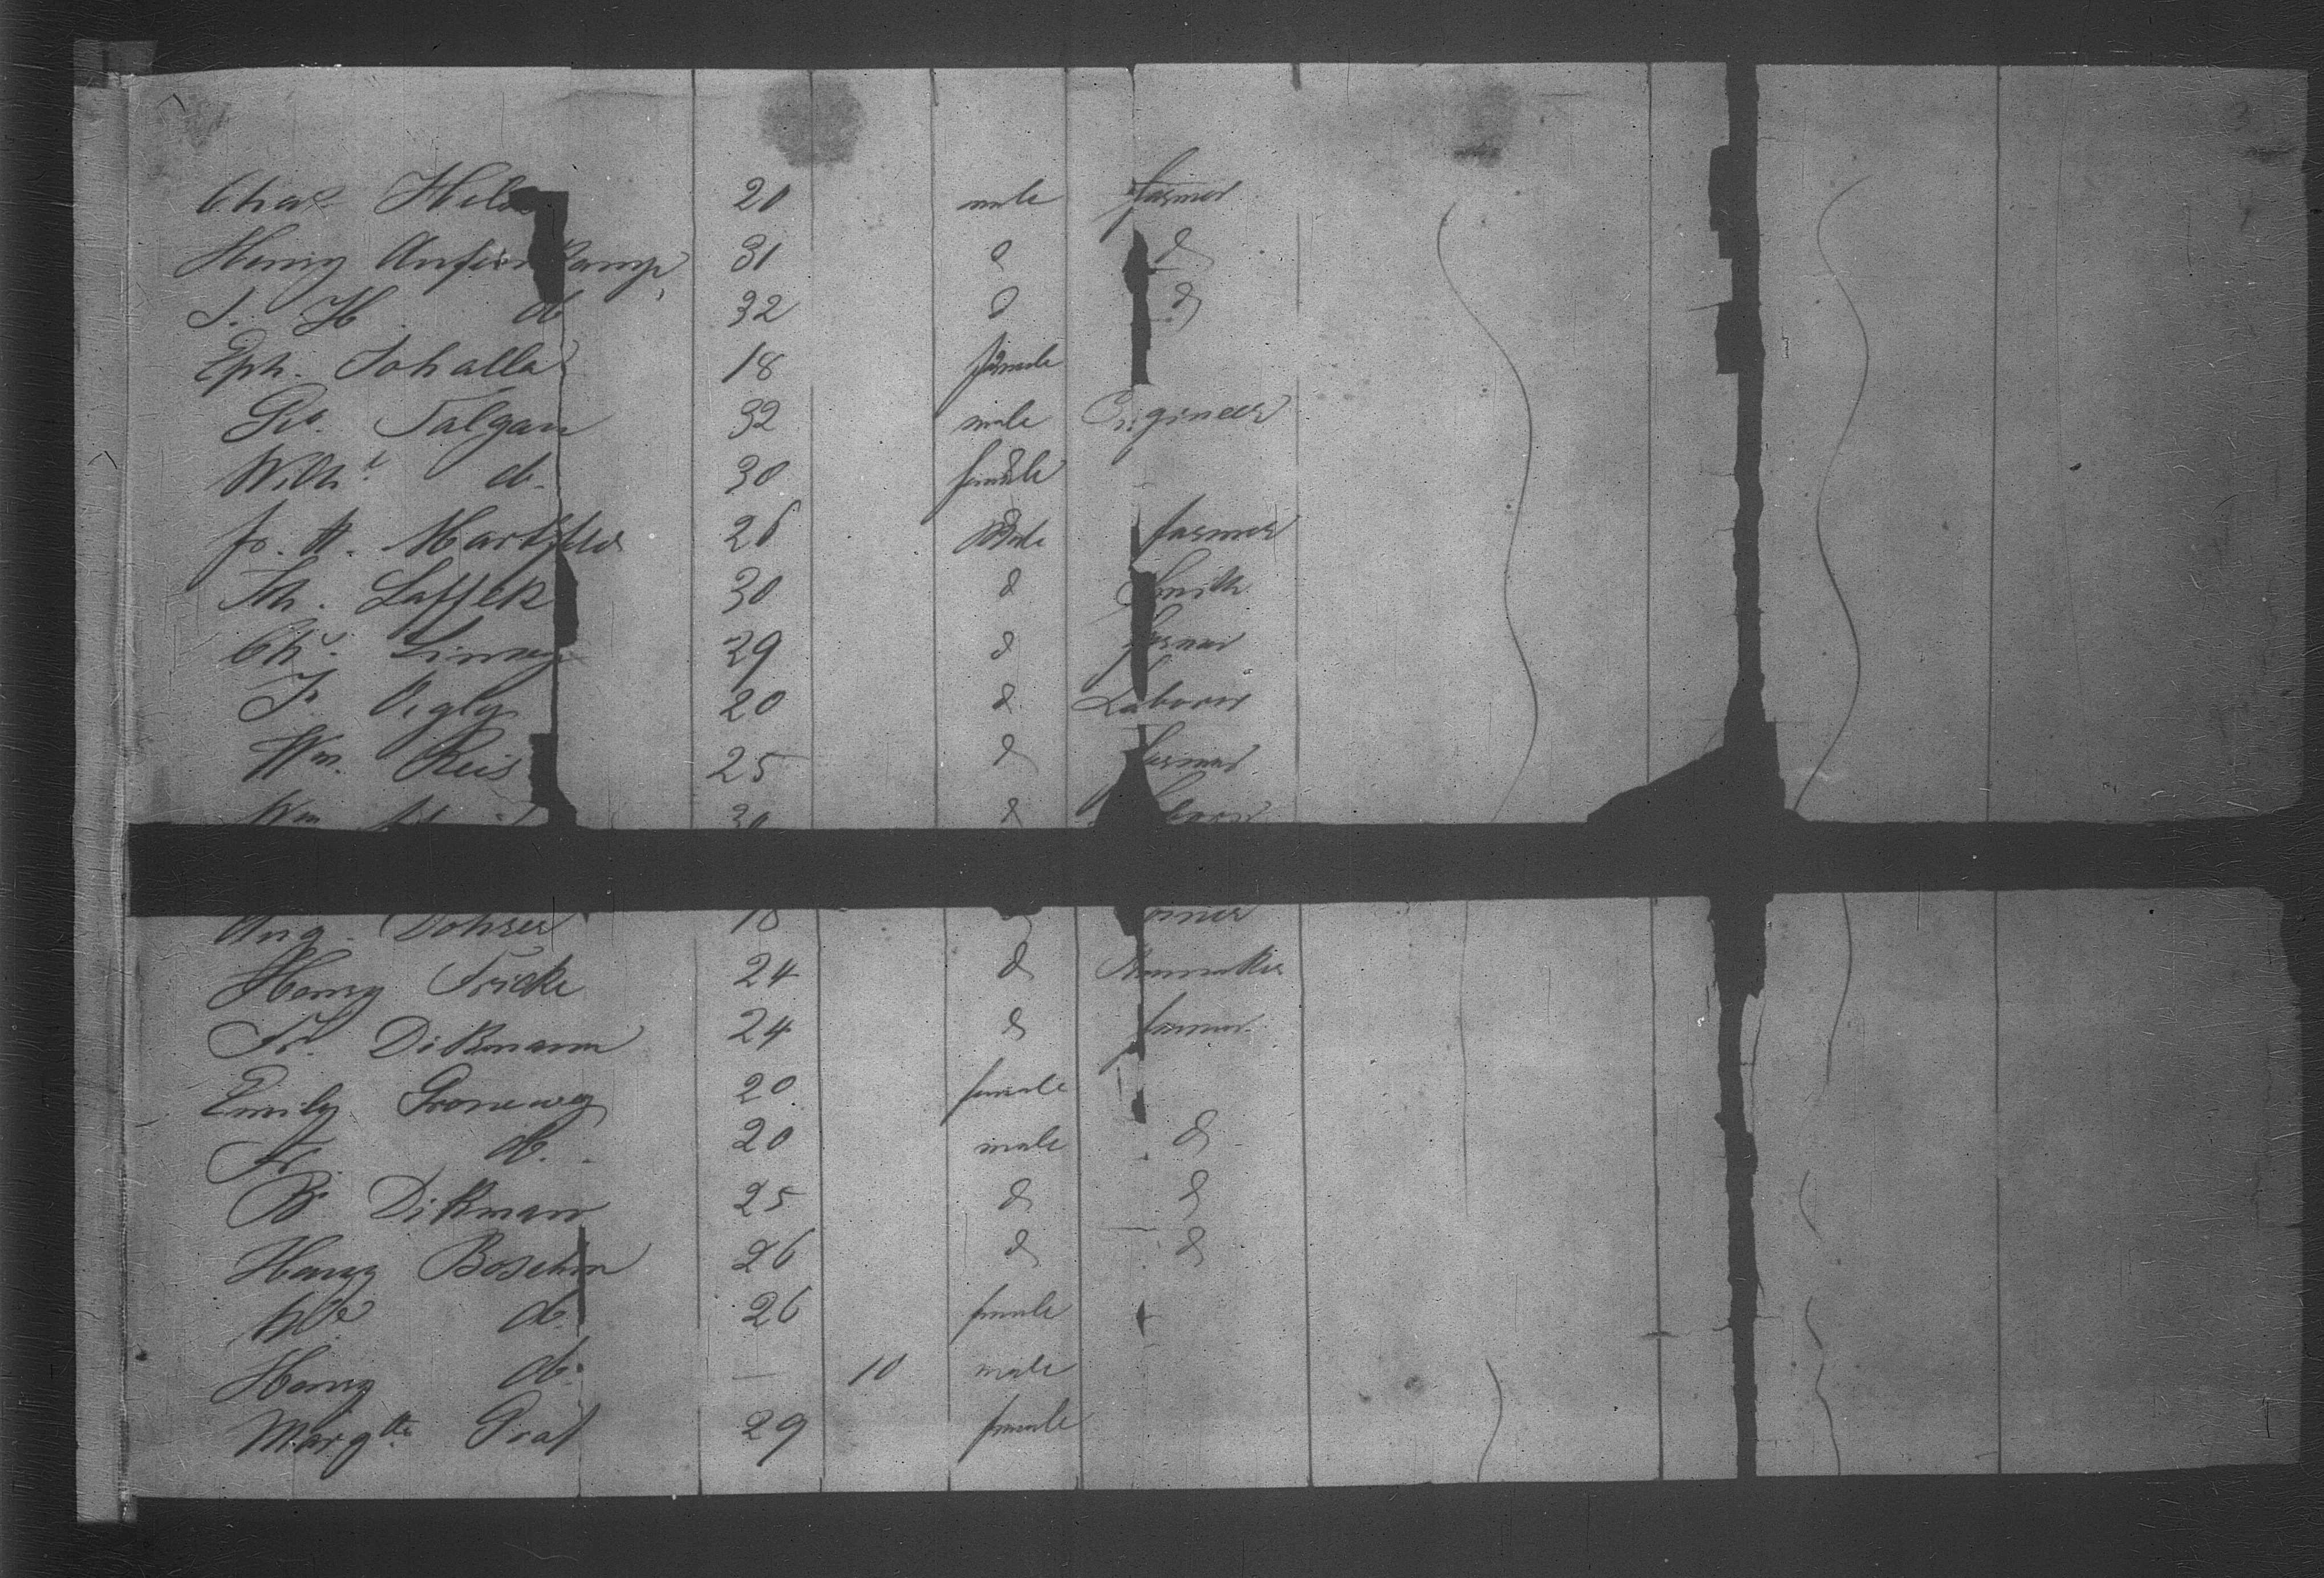 Chas Helm 20 male farmer
Henry Aufderkamp 31 d d
J. H. do 32 d d
Eph. Johalla 18 female
Go. Talgan 32 male Engineer
Wilh.t do. 30 female
Fr. W. 26 Male farmer
Joh. Laffek 30 d Smith
Chs. 29 d farmer
Fr. Vegly 20 d Laborer
Wm. Reis 25 d farmer
Wm 30 d
Aug. Dohrer 18
Henry Fricke 24 d
Fr. Dikmann 24 d farmer
Emily Groneweg 20 female
Fr. do. 20 male d
B. Dikmann 25 d d
Henry Boschen 26 d d
do. 26 female
Henry do. — 10 male
Margtte. Graf 29 female